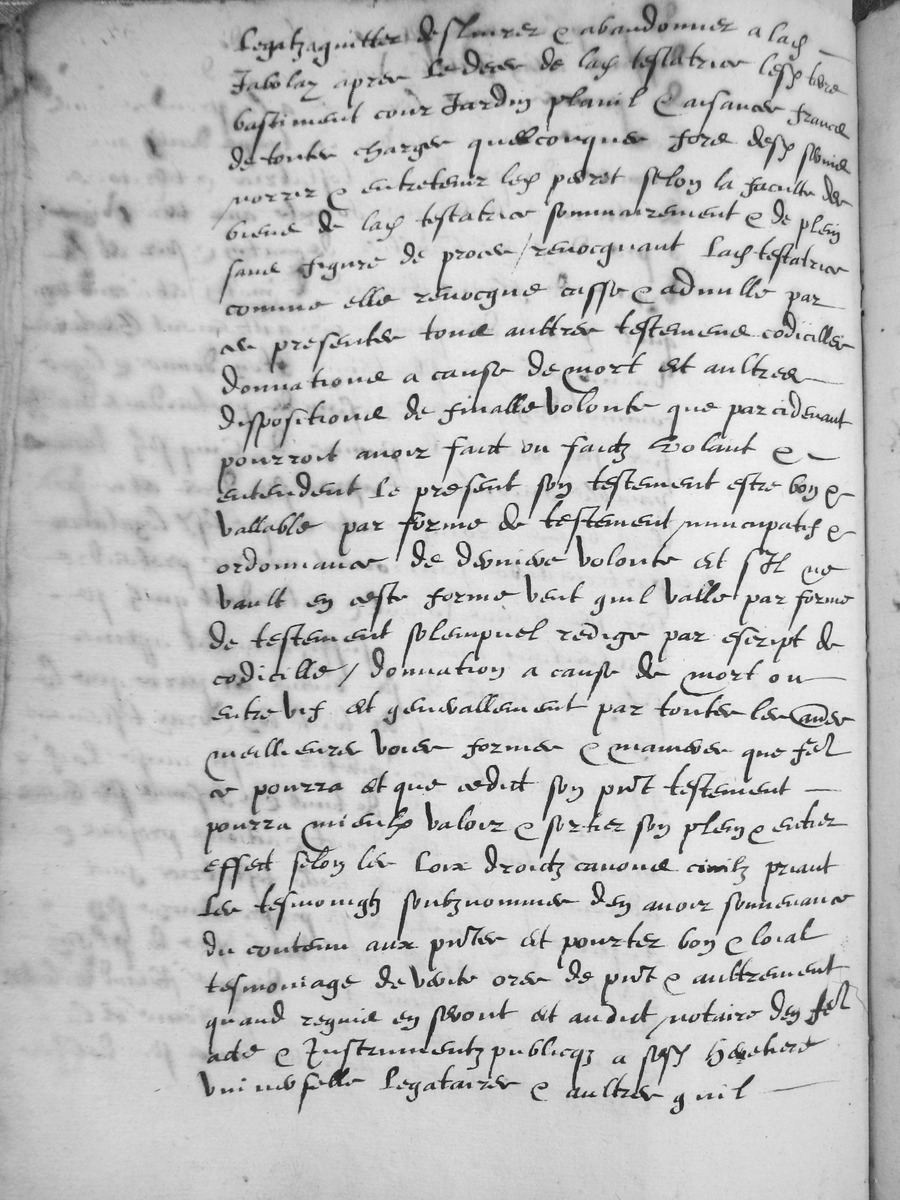 legatz aquitter deslivrer & abandonner a lad
Jabolaz apres le deces de lad testatrice lesd terre
bastiment cour Jardin planil & aisances france
de toutes charges quelconques fors desd
norrir & entretenir led peret selon la faculte des
biens de lad testatrice sommairement & de plein
sans figure de proces / revocquant lad testatrice
comme elle revocque casse & adnulle par
ces presentes tous aultres testemens codicilles
donnations a cause de mort et aultres
dispositions de finalle volonte que parcidevant
pourroit avoir faict ou faictz Volant &
entendent le present son testement estre bon &
vallable par forme de testement nuncupatif &
ordonnance de derniere volonte et s'Il ne
vault en ceste forme veut quil valle par forme
de testement solempnel redige par escript de
codicille / donnation a cause de mort ou
entre vif et generallement par toutes les
meillieures voies formes & manieres que fe
ce pourra et que cedict son pnt testement
pourra mieulx valoir & sortir son plein & entier
effect selon les loix droictz canons civilz priant
les tesmoingtz soubznommes den avoir souvenance
du contenu aux pntes et pourter bon & loial
tesmoniage de verite ores de pnt & aultrement
quand requis en seront et audict notaire den fe
acte & Instrumentz publicqz a sesd heretiers
universelle legataires & aultres quil